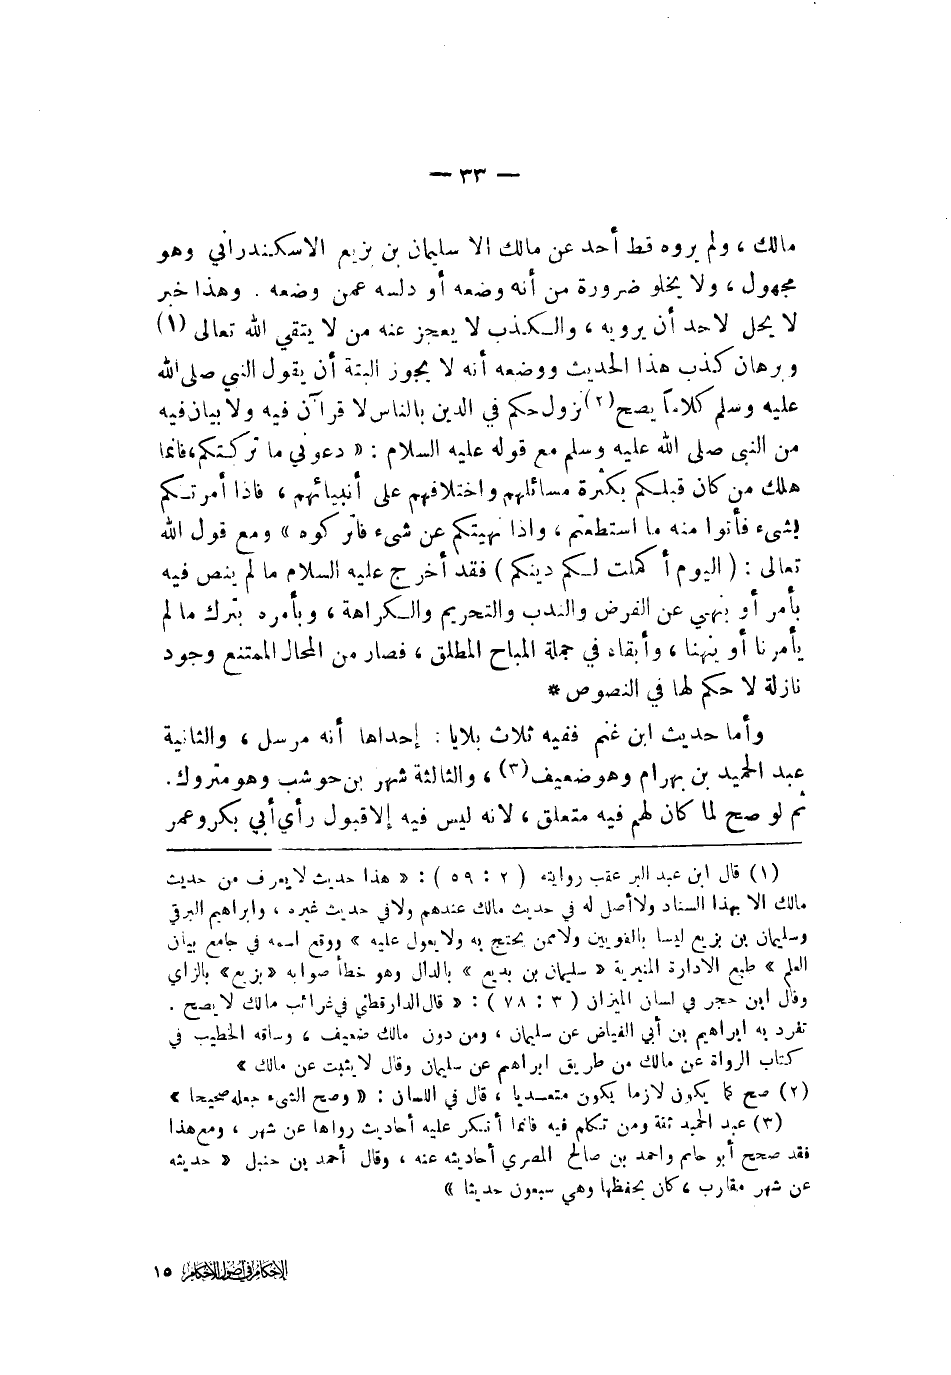 — ٣٣ —
مالك ، ولم يروه قط أحد عن مالك الا سليمان بن بزيع الاسكندراني وهو
مجهول ، ولا يخلو ضرورة من أنه وضعه أو دلسه عمن وضعه . وهذا خبر
لا يحل لاحد أن يرويه ، والكذب لا يعجز عنه من لا يتقي الله تعالى (١)
وبرهان كذب هذا الحديث ووضعه أنه لا يجوز البتة أن يقول النبي صلى الله
عليه وسلم كلاماً يصح (٢) نزول حكم في الدين بالناس لا قرآن فيه ولا بيان فيه
من النبى صلى الله عليه وسلم مع قوله عليه السلام : « دعوني ما تركتكم ، فانما
هلك من كان قبلكم بكثرة مسائلهم واختلافهم على أنبيائهم ، فاذا أمرتكم
بشىء فأتوا منه ما استطعتم ، واذا نهيتكم عن شىء فاتركوه » ومع قول الله
تعالى : ( اليوم أكملت لكم دينكم ) فقد أخرج عليه السلام ما لم ينص فيه
بأمر أو بنهي عن الفرض والندب والتحريم والكراهة ، وبأمره بترك ما لم
يأمرنا أو ينهنا ، وأبقاه في جملة المباح المطلق ، فصار من المحال الممتنع وجود
نازلة لا حكم لها في النصوص *
وأما حديث ابن غنم ففيه ثلاث بلايا : إحداها أنه مرسل ، والثانية
عبد الحميد بن بهرام وهو ضعيف (٣) ، والثالثة شهر بن حوشب وهو متروك .
ثم لو صح لما كان لهم فيه متعلق ، لانه ليس فيه إلا قبول رأي أبي بكر وعمر
(١) قال ابن عبد البر عقب روايته ( ٢ : ٥٩ ) : « هذا حديث لا يعرف من حديث
مالك الا بهذا السناد ولا أصل له في حديث مالك عندهم ولا في حديث غيره ، وابراهيم البرقي
وسليمان بن بزيع ليسا بالقويين ولا ممن يحتج به ولا يعول عليه » ووقع اسمه في جامع بيان
العلم » طبع الادارة المنيرية « سليمان بن بديع » بالدال وهو خطأ صوابه « بزيع » بالزاي
وقال ابن حجر في لسان الميزان ( ٣ : ٧٨ ) : « قال الدارقطني في غرائب مالك لا يصح .
تفرد به ابراهيم بن أبي الفياض عن سليمان ، ومن دون مالك ضعيف ، وساقه الخطيب في
كتاب الرواة عن مالك من طريق ابراهيم عن سليمان وقال لا يثبت عن مالك »
(٢) صح كما يكون لازما يكون متعديا ، قال في اللسان : « وصح الشىء جعله صحيحا »
(٣) عبد الحميد ثقة ومن تكلم فيه فانما أنكر عليه أحاديث رواها عن شهر ، ومع هذا
فقد صحح أبو حاتم واحمد بن صالح المصري أحاديثه عنه ، وقال أحمد بن حنبل « حديثه
عن شهر مقارب ، كان يحفظها وهي سبعون حديثا »
الإحكام في أصول الأحكام ١٥